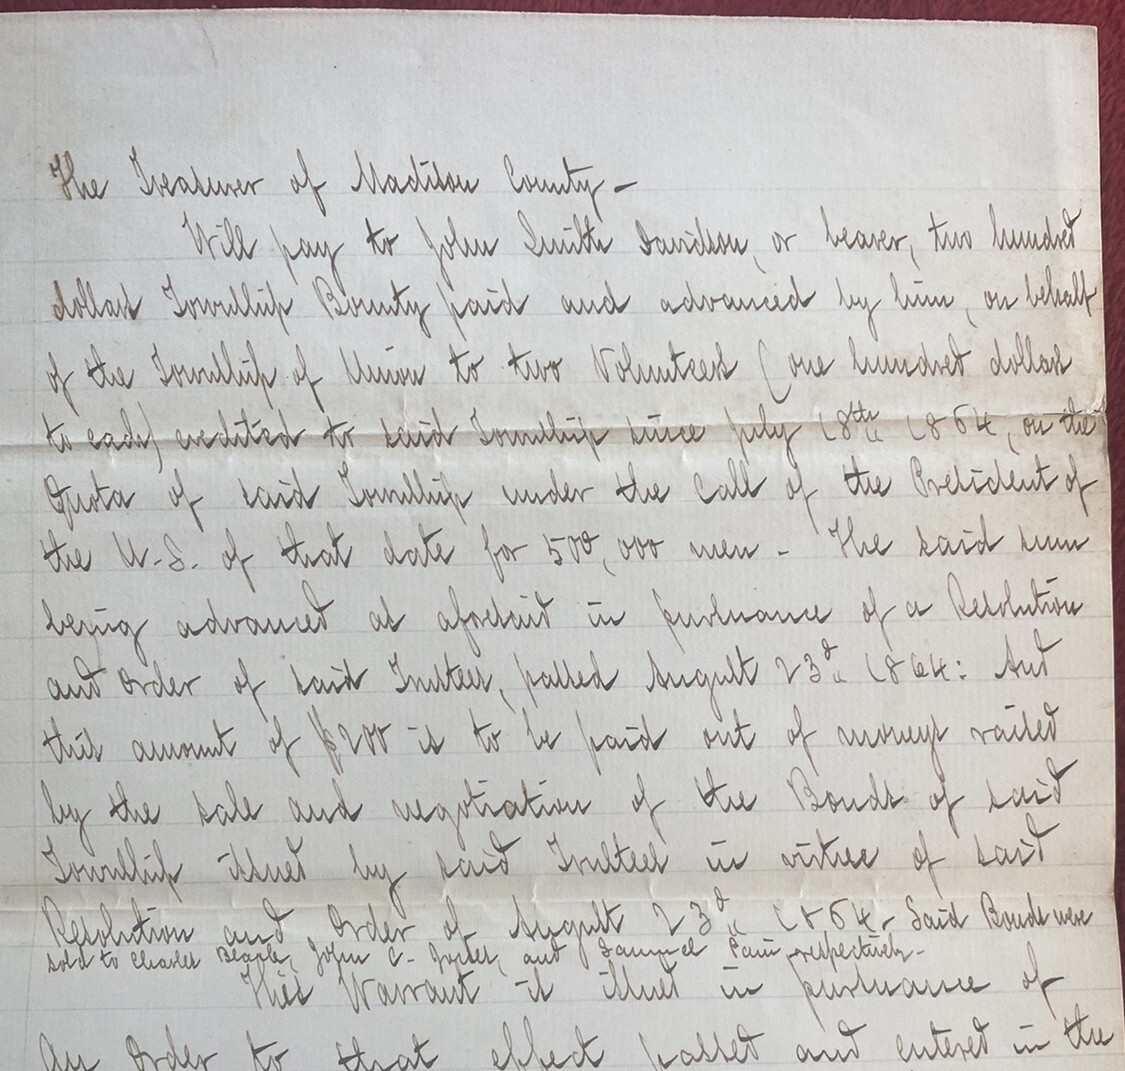 The Treasurer of Madison County -
Will pay to John Smith Davidson, or bearer, two hundred
dollars Township Bounty paid and advanced by him, on behalf
of the Township of Union to two Volunteers (one hundred dollars
to each) credited to said Township since July 18th 1864, on the
Quota of said Township under the Call of the President of
the U.S. of that date for 500,000 men - The said sum
being advanced as aforesaid in pursuance of a Resolution
and order of said Trustees, passed August 23d 1864: And
this amount of $200 is to be paid out of moneys raised
by the sale and negotiation of the Bonds of said
Township issued by said Trustees in virtue of said
Resolution and Order of August 23d 1864 - Said Bonds were
sold to Charles John C. and Samuel respectively -
This Warrant is issued in pursuance of
An Order to that effect passed and entered in the